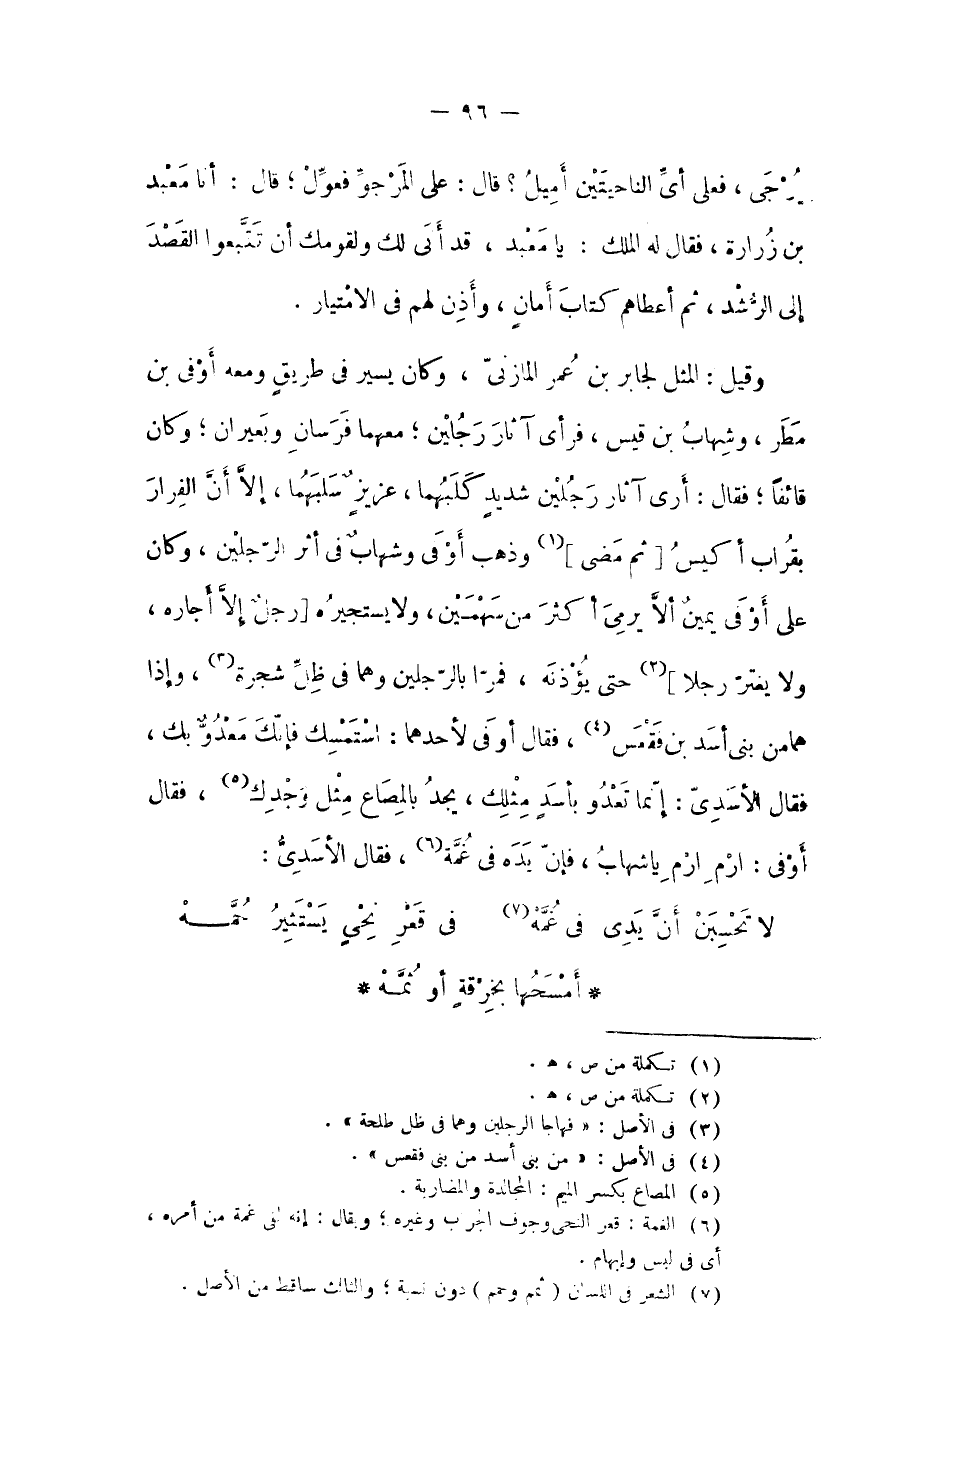 — ٩٦ —
يُرْجَى ، فعلى أىِّ الناحيتَيْن أَمِيلُ ؟ قال : على المَرْجوِّ فعوِّلْ ؛ قال : أنا مَعْبد
بن زُرارة ، فقال له الملك : يا مَعْبد ، قد أَنَى لك ولقومك أن تَتَّبعوا القَصْدَ
إلى الرُّشْد ، ثم أعطاهم كتابَ أَمانٍ ، وأَذِن لهم فى الامْتيار .
وقيل : المثل لجابر بن عُمر المازنىّ ، وكان يسير فى طريقٍ ومعه أَوْفى بن
مَطَر ، وشِهابُ بن قيس ، فرأى آثارَ رَجُلَيْن ؛ معهما فَرَسانِ وبَعيران ؛ وكان
قائفًا ؛ فقال : أَرى آثار رَجُلَيْن شديدٍ كَلَبُهما ، عزيزٍ سَلَبَهُما ، إلاَّ أَنَّ الفِرارَ
بقُراب أكيسُ [ ثم مَضى ](١) وذهب أَوْفَى وشهابٌ فى أثر الرّجلَيْن ، وكان
على أَوْفَى يمينٌ ألاَّ يرمِىَ أكثرَ من سَهْمَيْن، ولا يستجيرُه [ رجلٌ إلاَّ أَجاره ،
ولا يغترّ رجلا ](٢) حتى يُؤْذنَه ، فمرّا بالرّجلين وهما فى ظِلِّ شجرة(٣) ، وإذا
هما من بنى أَسَد بن فَقْعَس(٤) ، فقال أوفَى لأحدهما : اسْتَمْسِك فإنّكَ مَعْدُوٌّ بك ،
فقال الأسَدِىّ : إنّما تَعْدُو بأسَدٍ مِثْلِك ، يجدُ بالمِصَاع مِثْل وَجْدِك(٥) ، فقال
أَوْفى : ارْمِ ارْمِ يا شهابُ ، فإنّ يَدَه فى غُمَّة(٦) ، فقال الأسَدِىُّ :
لا تَحْسِبَنْ أَنَّ يَدِى فى غُمَّهْ(٧) فى قَعْرِ نِحْىٍ يَسْتَثِيرُ حُمَّـــهْ
* أَمْسَحُها بخِرْقةٍ أو ثُمَّـهْ *
(١) تكملة من ص ، هـ .
(٢) تكملة من ص ، هـ .
(٣) فى الأصل : « فهاجا الرجلين وهما فى ظل طلحة » .
(٤) فى الأصل : « من بنى أسد من بنى فقعس » .
(٥) المصاع بكسر الميم : المجالدة والمضاربة .
(٦) الغمة : قعر النحى وجوف الجراب وغيره ؛ ويقال : إنه لفى غمة من أمره ،
أى فى لبس وإبهام .
(٧) الشعر فى اللسان ( ثمم وحمم ) دون نسبة ؛ والثالث ساقط من الأصل .